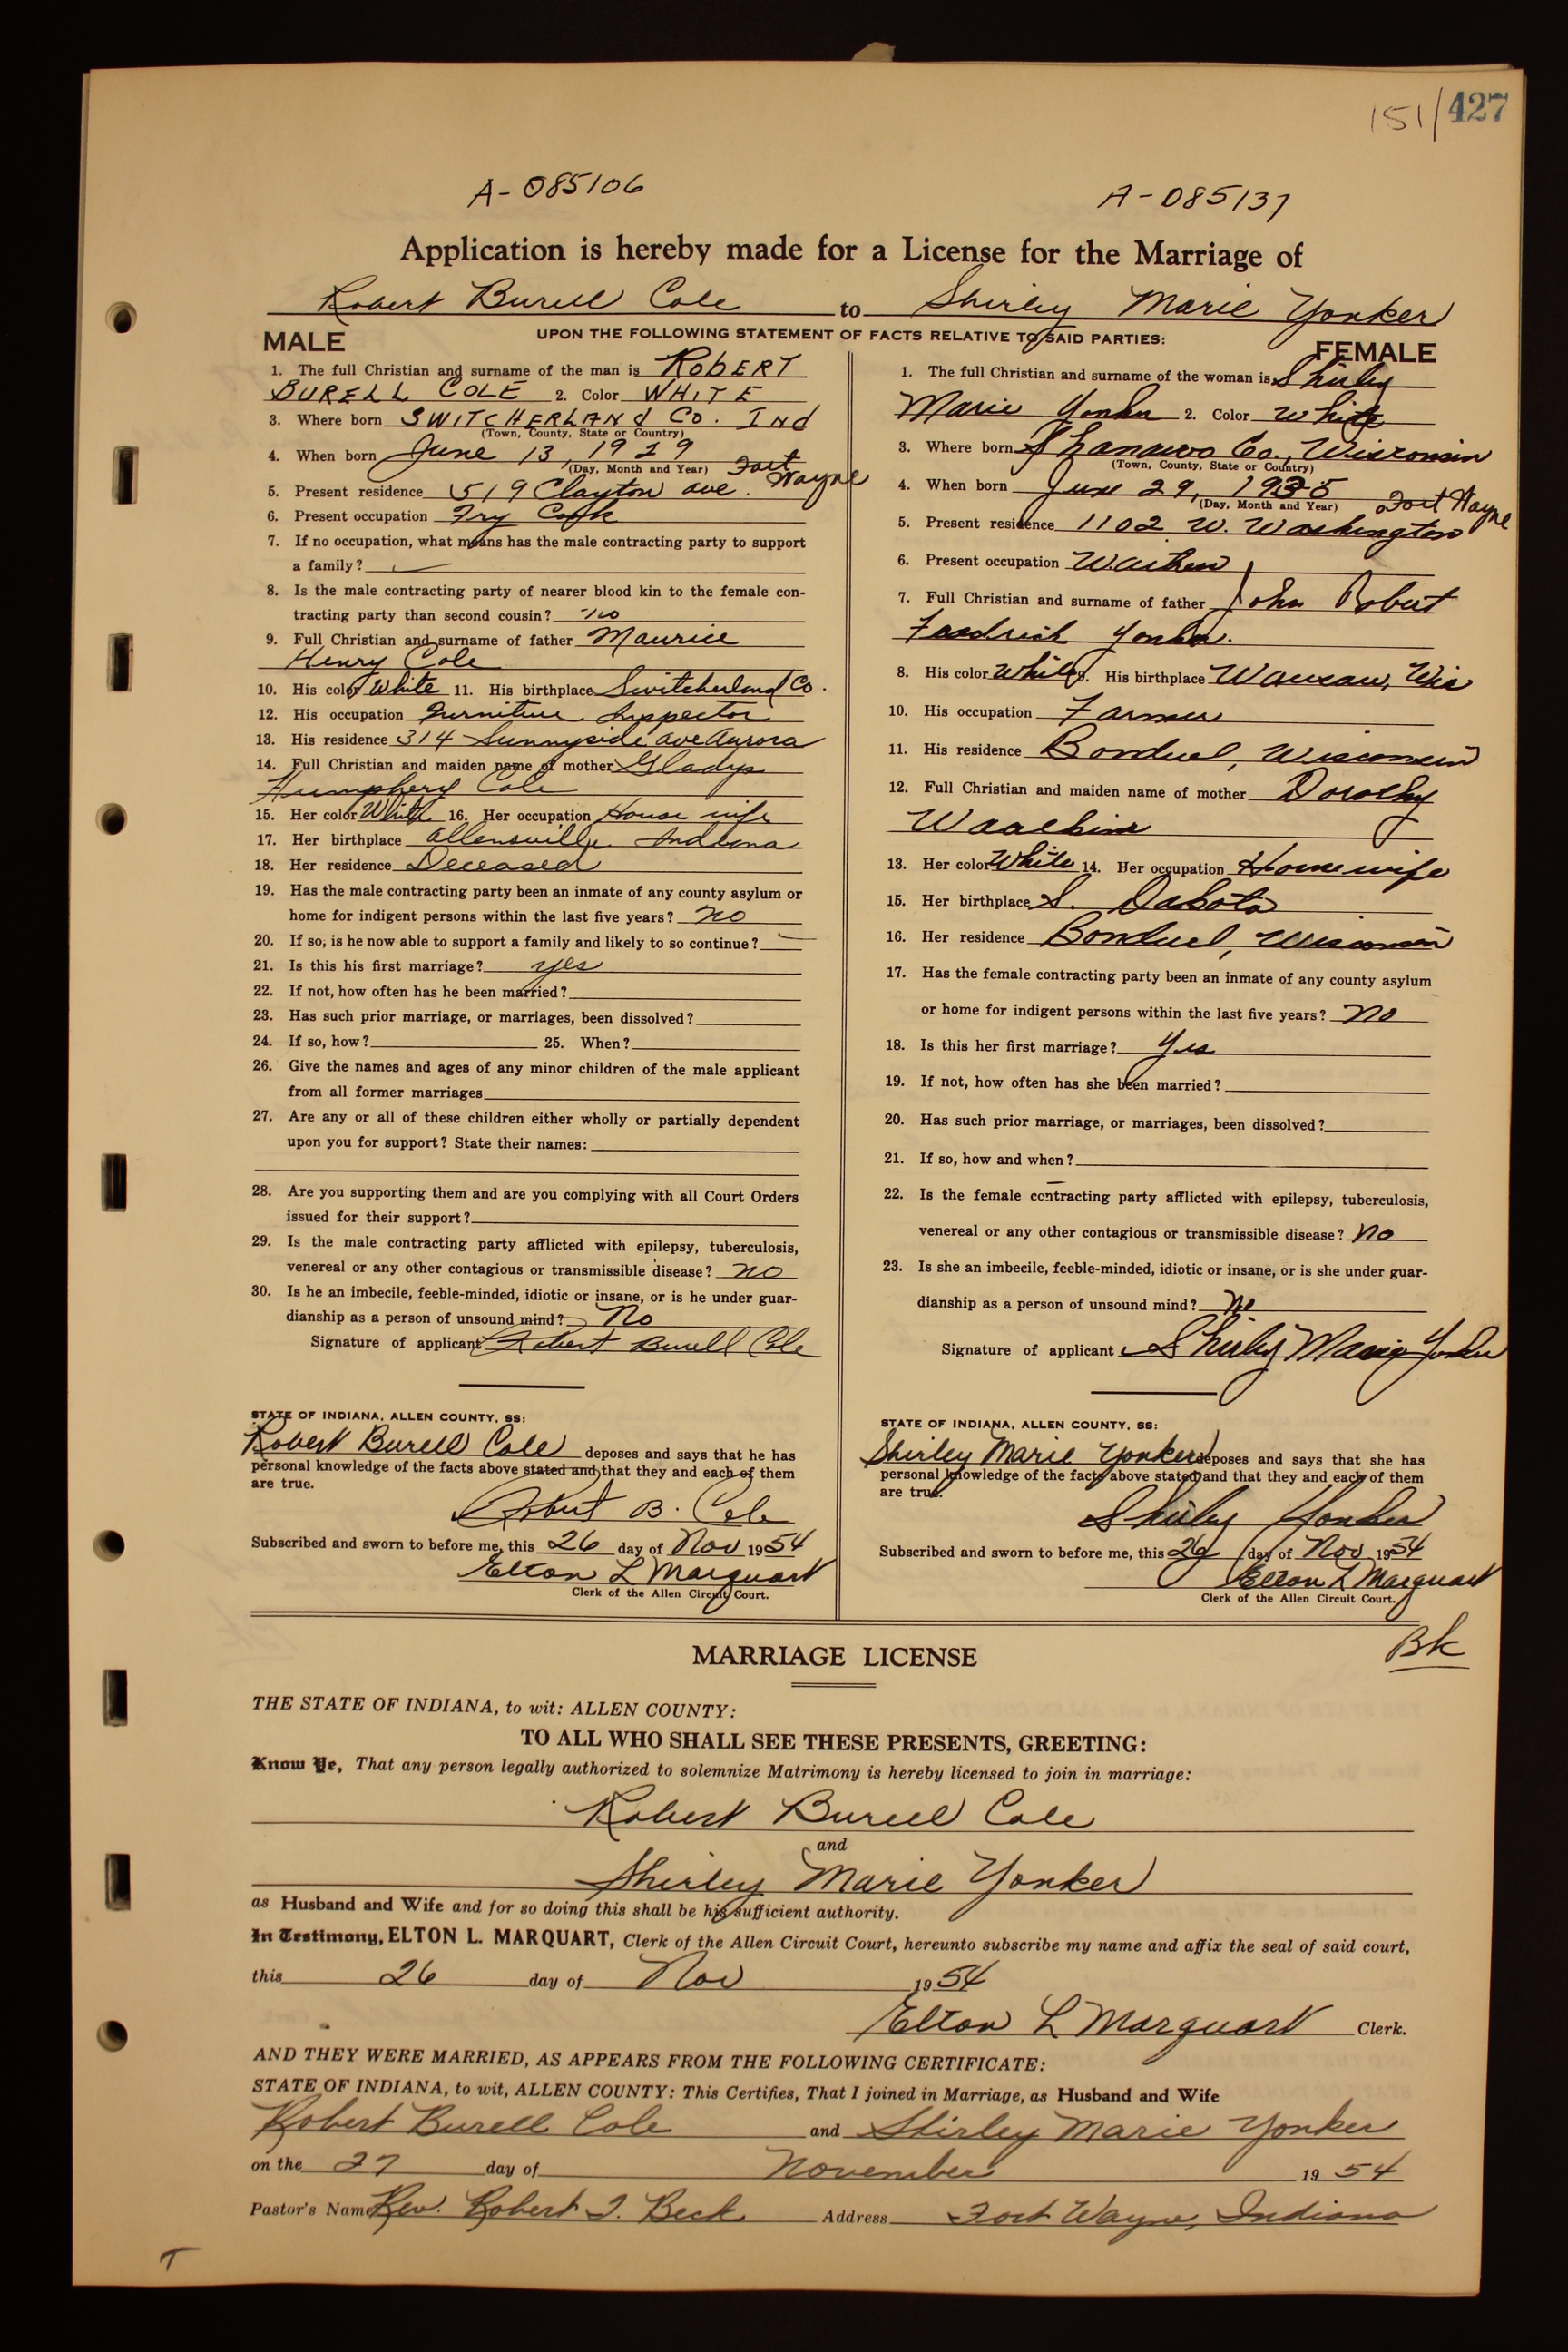 151/427
A-085106
A-085137
Application is hereby made for a License for the Marriage of
Robert Burell Cole to Shirley Marie Yonker
UPON THE FOLLOWING STATEMENT OF FACTS RELATIVE TO SAID PARTIES:
MALE
1. The full Christian and surname of the man is ROBERT
BURELL COLE 2. Color WHITE
3. Where born SWITCHERLAND CO. IND
(Town, County, State or Country)
4. When born June 13, 1929
(Day, Month and Year)
5. Present residence 519 Clayton ave. Fort Wayne
6. Present occupation Fry Cook
7. If no occupation, what means has the male contracting party to support
a family?
8. Is the male contracting party of nearer blood kin to the female con-
tracting party than second cousin? no
9. Full Christian and surname of father Maurice
Henry Cole
10. His color White 11. His birthplace Switcherland Co.
12. His occupation Furniture Inspector
13. His residence 314 Sunnyside Ave Aurora
14. Full Christian and maiden name of mother Gladys
Humphery Cole
15. Her color White 16. Her occupation House wife
17. Her birthplace Allensville Indiana
18. Her residence Deceased
19. Has the male contracting party been an inmate of any county asylum or
home for indigent persons within the last five years? no
20. If so, is he now able to support a family and likely to so continue?
21. Is this his first marriage? yes
22. If not, how often has he been married?
23. Has such prior marriage, or marriages, been dissolved?
24. If so, how? 25. When?
26. Give the names and ages of any minor children of the male applicant
from all former marriages
27. Are any or all of these children either wholly or partially dependent
upon you for support? State their names:
28. Are you supporting them and are you complying with all Court Orders
issued for their support?
29. Is the male contracting party afflicted with epilepsy, tuberculosis,
venereal or any other contagious or transmissible disease? no
30. Is he an imbecile, feeble-minded, idiotic or insane, or is he under guar-
dianship as a person of unsound mind? No
Signature of applicant Robert Burell Cole
STATE OF INDIANA, ALLEN COUNTY, SS:
Robert Burell Cole deposes and says that he has
personal knowledge of the facts above stated and that they and each of them
are true.
Robert B. Cole
Subscribed and sworn to before me, this 26 day of Nov 1954
Elton L Marquart
Clerk of the Allen Circuit Court.
FEMALE
1. The full Christian and surname of the woman is Shirley
Marie Yonker 2. Color White
3. Where born Shanawo Co., Wisconsin
(Town, County, State or Country)
4. When born June 29, 1935
(Day, Month and Year)
5. Present residence 1102 W. Washington Fort Wayne
6. Present occupation
7. Full Christian and surname of father John Robert
Yonker.
8. His color White 9. His birthplace Wausau, Wis
10. His occupation Farmer
11. His residence Bonduel, Wisconsin
12. Full Christian and maiden name of mother Dorothy
13. Her color White 14. Her occupation Housewife
15. Her birthplace S. Dakota
16. Her residence Bonduel, Wisconsin
17. Has the female contracting party been an inmate of any county asylum
or home for indigent persons within the last five years? no
18. Is this her first marriage? Yes
19. If not, how often has she been married?
20. Has such prior marriage, or marriages, been dissolved?
21. If so, how and when?
22. Is the female contracting party afflicted with epilepsy, tuberculosis,
venereal or any other contagious or transmissible disease? no
23. Is she an imbecile, feeble-minded, idiotic or insane, or is she under guar-
dianship as a person of unsound mind? no
Signature of applicant Shirley Marie Yonker
STATE OF INDIANA, ALLEN COUNTY, SS:
Shirley Marie Yonker deposes and says that she has
personal knowledge of the facts above stated and that they and each of them
are true.
Shirley Yonker
Subscribed and sworn to before me, this 26 day of Nov 1954
Elton L Marquart
Clerk of the Allen Circuit Court.
BK
MARRIAGE LICENSE
THE STATE OF INDIANA, to wit: ALLEN COUNTY:
TO ALL WHO SHALL SEE THESE PRESENTS, GREETING:
Know Ye, That any person legally authorized to solemnize Matrimony is hereby licensed to join in marriage:
Robert Burell Cole
and
Shirley Marie Yonker
as Husband and Wife and for so doing this shall be his sufficient authority.
In Testimony, ELTON L. MARQUART, Clerk of the Allen Circuit Court, hereunto subscribe my name and affix the seal of said court,
this 26 day of Nov 1954
Elton L Marquart Clerk.
AND THEY WERE MARRIED, AS APPEARS FROM THE FOLLOWING CERTIFICATE:
STATE OF INDIANA, to wit, ALLEN COUNTY: This Certifies, That I joined in Marriage, as Husband and Wife
Robert Burell Cole and Shirley Marie Yonker
on the 27 day of November 1954
Pastor's Name Rev. Robert J. Beck Address Fort Wayne, Indiana
T